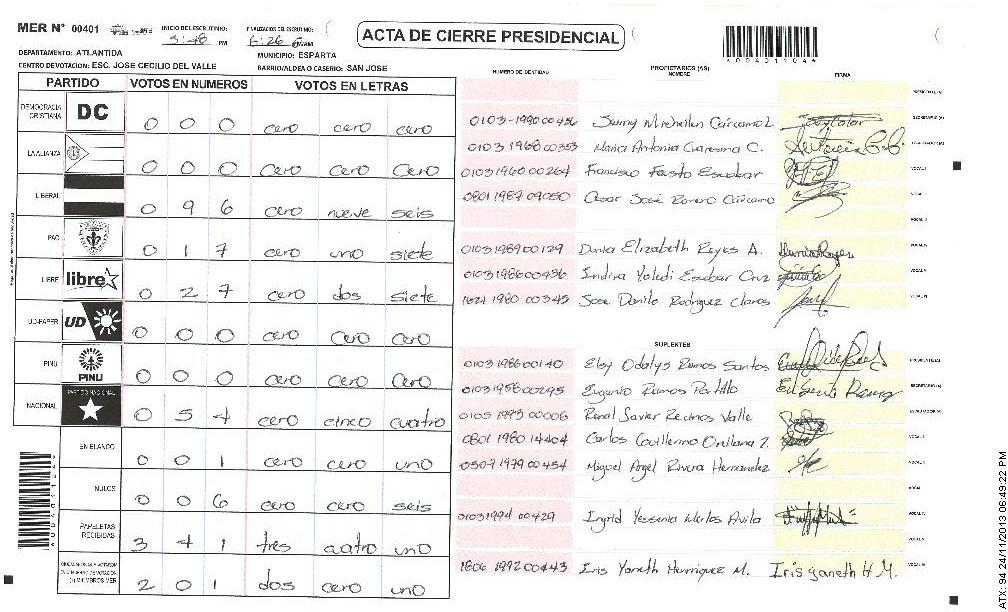 MER N° 00401 INICIO DEL ESCRUTINIO: 5:48 PM FINALIZACION DEL ESCRUTINIO: 6:26 AM
ACTA DE CIERRE PRESIDENCIAL
DEPARTAMENTO: ATLANTIDA MUNICIPIO: ESPARTA
CENTRO DE VOTACION: ESC. JOSE CECILIO DEL VALLE BARRIO/ALDEA O CASERIO: SAN JOSE
PARTIDO VOTOS EN NUMEROS VOTOS EN LETRAS
DEMOCRACIA CRISTIANA DC 0 0 0 cero cero cero
LA ALIANZA 0 0 0 cero cero cero
LIBERAL 0 9 6 cero nueve seis
PAC 0 1 7 cero uno siete
LIBRE libre 0 2 7 cero dos siete
UD-FAPER UD 0 0 0 cero cero cero
PINU PINU 0 0 0 cero cero cero
NACIONAL PARTIDO NACIONAL 0 5 4 cero cinco cuatro
EN BLANCO 0 0 1 cero cero uno
NULOS 0 0 6 cero cero seis
PAPELETAS RECIBIDAS 3 4 1 tres cuatro uno
2 0 1 dos cero uno
NUMERO DE IDENTIDAD PROPIETARIOS (AS) NOMBRE FIRMA
PRESIDENTE (A)
0103-1990 00456 Michellen Carcamo L SECRETARIO (A)
0103 1968 00353 Maria Antonia C. ESCRUTADOR (A)
0103 1960 00264 Francisco Fausto Escobar VOCAL I
0801 1987 09050 Cesar José Romero Carcamo VOCAL II
VOCAL III
0103 1989 00129 Dunia Elizabeth Reyes A. VOCAL IV
0103 1986 00436 Indira Yoledi Escobar Cruz VOCAL V
1621 1980 00345 Jose Danilo Rodriguez Claros VOCAL VI
SUPLENTES
0103 1986 00140 Elsy Odalys Ramos Santos PRESIDENTE (A)
0103 1958 00295 Eugenio Ramos Portillo SECRETARIO (A)
0105 1993 00006 Renal Javier Recinos Valle ESCRUTADOR (A)
0801 1980 14404 Carlos Guillermo Orellana Z. VOCAL I
0507 1979 00454 Miguel Angel Rivera Hernandez VOCAL II
VOCAL
0103 1994 00429 Ingrid Yessenia Merlos Avila VOCAL IV
VOCAL V
1806 1992 00443 Iris Yaneth Henriquez M. Iris yaneth H.M. VOCAL VI
*00401104*
ATX: 94 24/11/2013 06:49:22 PM